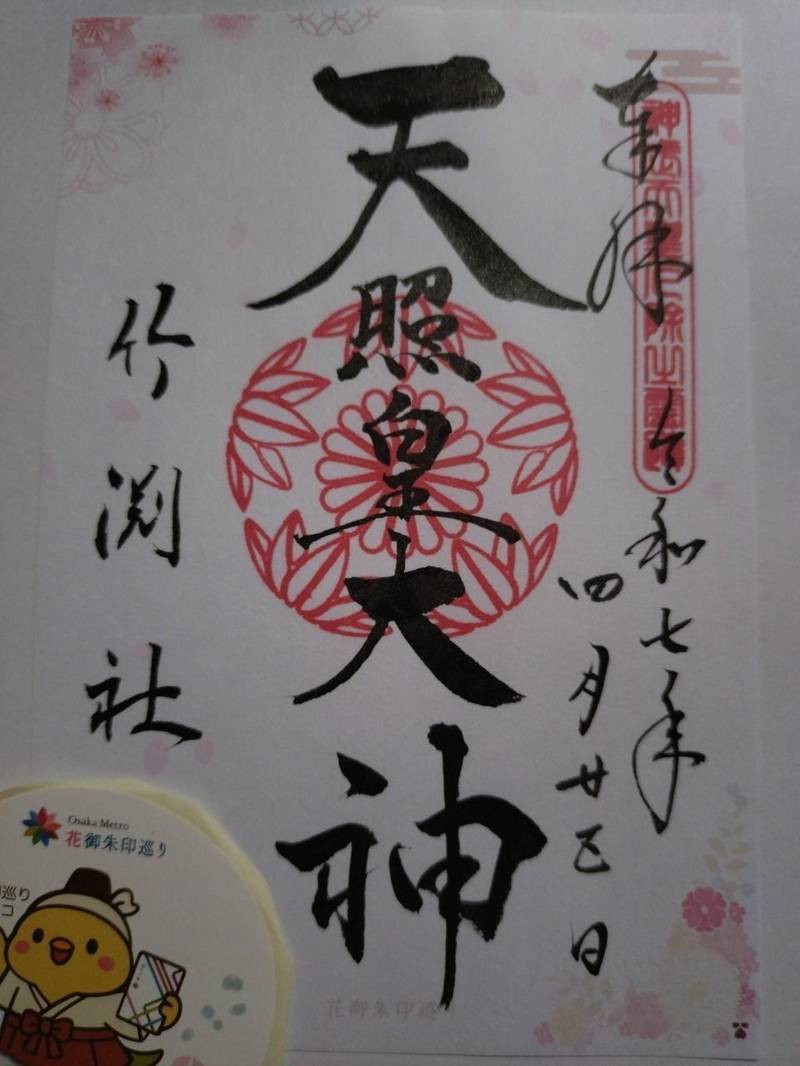 奉拝 令和七年
四月廿五日
天照皇大神
竹渕社
花御朱印巡り
Osaka Metro
花御朱印巡り
巡り
コ